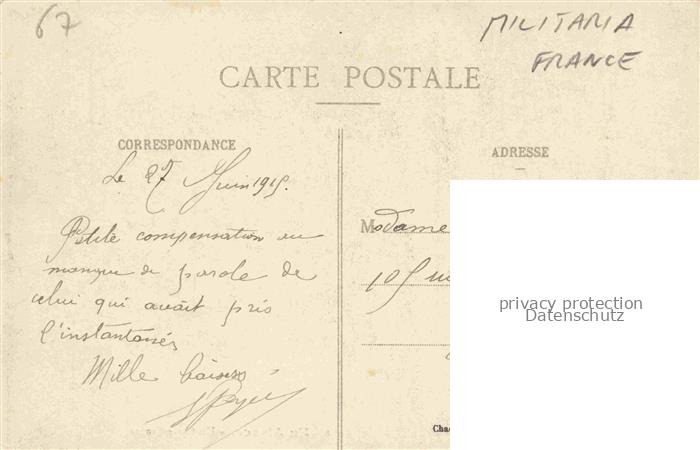 67
MILITARIA
FRANCE
CARTE POSTALE
CORRESPONDANCE
ADRESSE
Le 27 Juin 1915.
Petite compensation au
manque de parole de
celui qui avait pris
l'instantanés
Mille baisers
Madame
105
Cha
privacy protection
Datenschutz